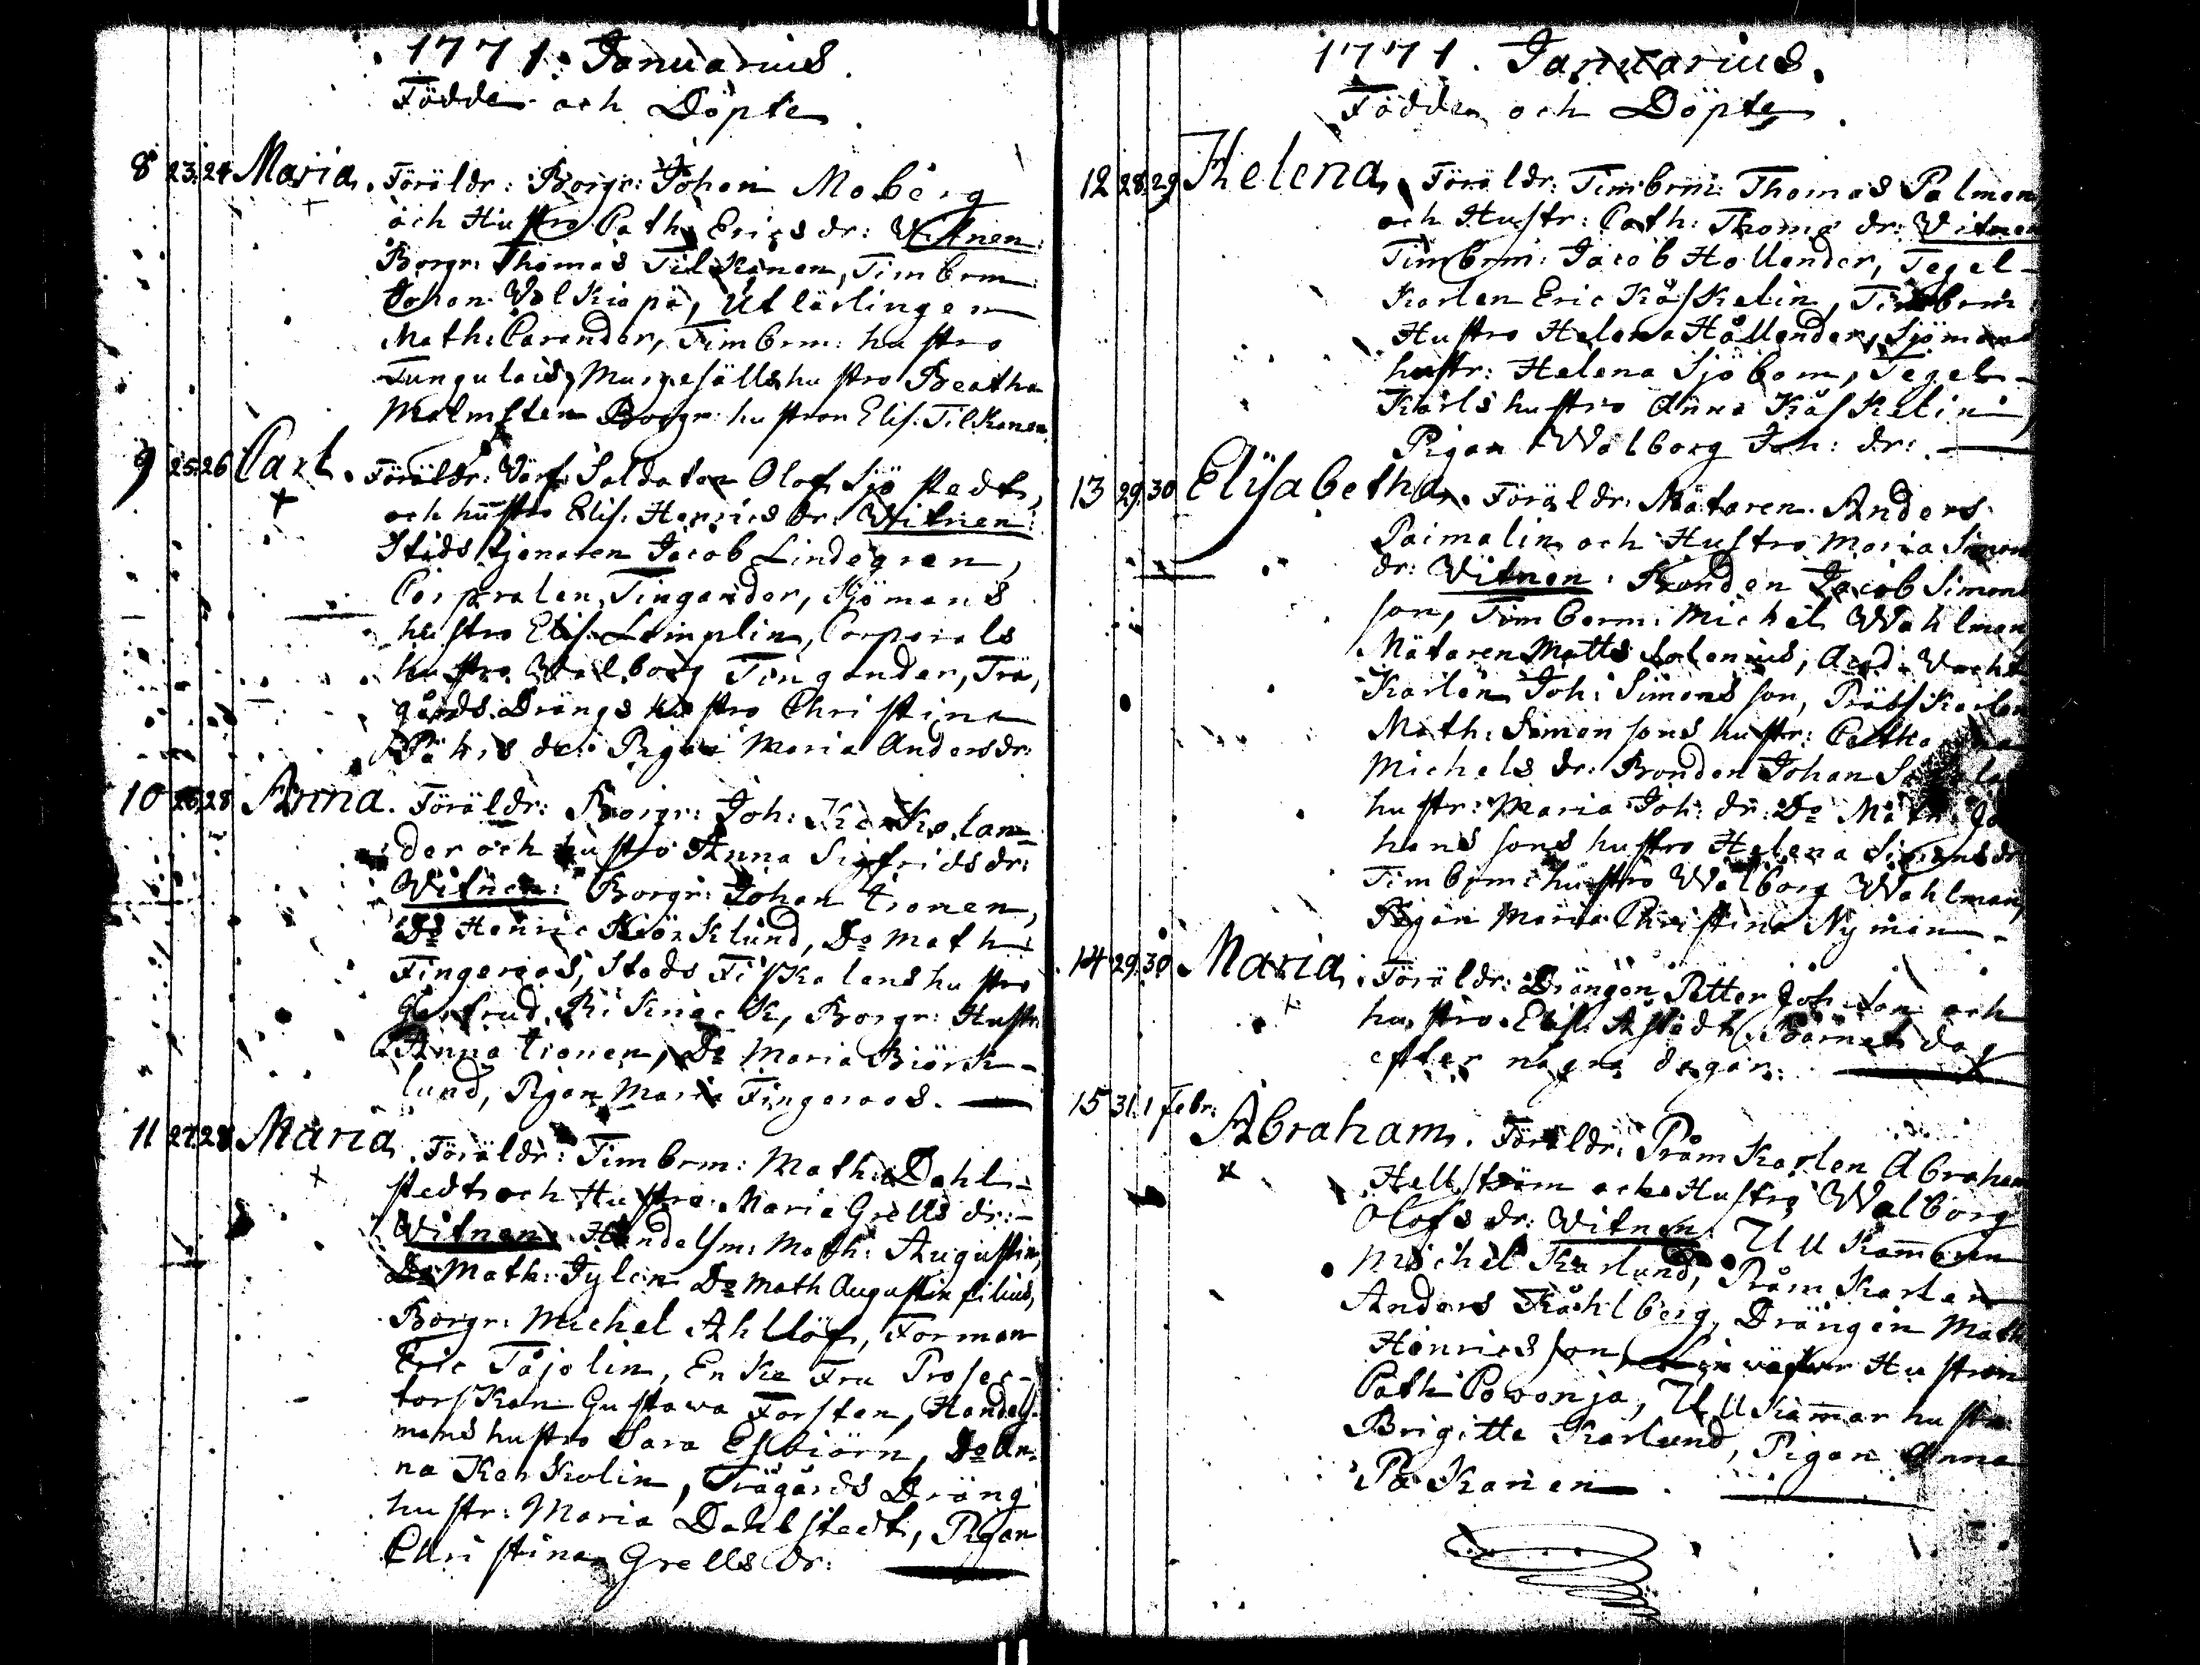 1771. Januarius.
Födde och Döpte
8 23. 24 Maria. Föräldr: Borgr: Johan Moberg
och Hustro Cath: Erics dr: Witnen:
Borgr: Thomas Tilkanen, Timberm:
Johan Walkiapä, Utlärlingen
Math: Carander, Timberm: hustro
Tungulais, Murgesälls hustro Beatha
Malmsten Borgr: hustron Elis. Tilkanen.
9 25. 26 Carl. Föräldr: Värf. Soldaten Olof Sjöstedt,
och hustro Elis. Henrics dr: Witnen:
Stads tjenaren Jacob Lindegren,
Corporalen Tingander, Sjömans
hustro Elis. Limplin, Corporals
hustro Walborg Tingander, Trä,
gårds Drängs hustro Christina
dr: Pigan Maria Anders dr:
10 28 Anna. Föräldr: Borgr: Joh: Kerkolan=
der och hustro Anna Sigfrids dr:
Witnen: Borgr: Johan Tronen,
Do Henric Biörklund, Do Math:
Fingeroos, Stads Fiskalens hustro
Gertrud Rikneck, Borgr: Hustr:
Anna Tronen, Do Maria Biörk-
lund, Pigan Maria Fingeroos.
11 27. 28 Maria. Föräldr: Timberm: Math: Dahl-
stedt och Hustro Maria Grells dr:-
Witnen: Handelsm: Math: Augustin,
Do Math: Jylen Do Math Augustin filius,
Borgr: Michel Ahllöf, Forman
Eric Tåjolin, Enke Fru Profes-
torskan Gustava Forsten, Handels-
mans hustro Sara Esbiörn, Do An-
na Kerkolin, Trägårds Dräng
hustr: Maria Dahlstedt, Pigan
Christina Grells dr:
1771. Januarius.
Födde och Döpte
12 28. 29 Helena. Föräldr: Timberm: Thomas Palmen
och Hustr: Cath: Thoms dr: Witnen
Timberm: Jacob Hollender, Tegel-
Karlen Eric Kåskelin, Timberm
Hustro Helena Hållender, Sjömans
hustr: Helena Sjöbom, Tegel-
Karls hustro Anna Kåskelin,
Pigan Walborg Joh: dr:
13 29. 30 Elisabetha. Föräldr: Mätaren Anders
Paimalin och Hustro Maria Simons
dr: Witnen: Bonden Jacob Simons
son, Timberm: Michel Wahlman,
Mätaren Matts Solenius, Acad: Vacht
Karlen Joh: Simons son,
Math: Simonsons hustr:
Michels dr: Bonden Johan
hustr: Maria Joh: dr: Do Math: Jo
hans sons hustro Helena Simons dr
Timberm: hustro Walborg Wahlman,
Pigan Maria Christina Nyman -
14 29. 30 Maria. Föräldr: Drängen Petter Joh: son och
hustro Elis. Barnet dog
efter några dagar.
15 31. 1 Febr: Abraham. Föräldr: Pråm Karlen Abraham
Hellström och Hustro Walborg
Olofs dr: Witnen: Ullkam̅aren
Michel Karlund, Pråm Karlen
Anders Kåhlberg, Drängen Math
Henricsson, Hustron
Cath: Povonja, Ullkam̅ar hustro
Brigitta Karlund, Pigan Anna
Pakanen.